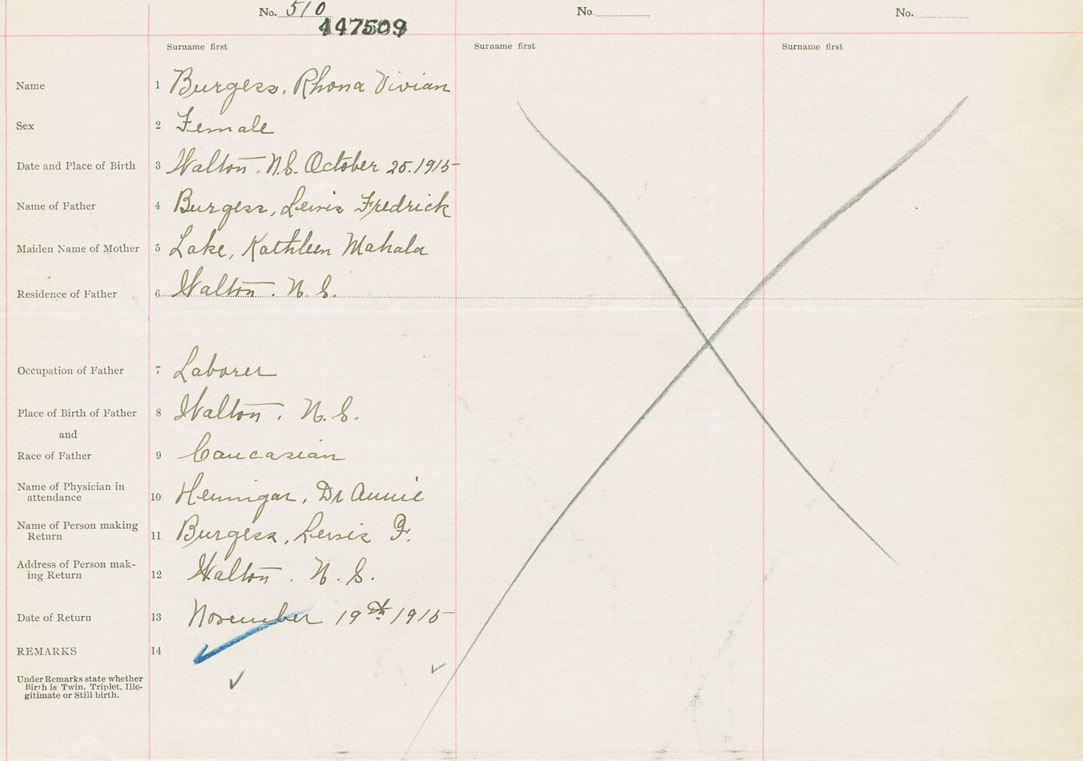 No. 510 No. No.
447509
Surname first Surname first Surname first
Name 1 Burgess, Rhona Vivian
Sex 2 Female
Date and Place of Birth 3 Walton. N.S. October 25. 1915
Name of Father 4 Burgess, Lewis Fredrick
Maiden Name of Mother 5 Lake, Kathleen Mahala
Residence of Father 6 Walton. N.S.
Occupation of Father 7 Laborer
Place of Birth of Father 8 Walton. N.S.
and
Race of Father 9 Caucasian
Name of Physician in
attendance 10 Hennigar, Dr Annie
Name of Person making
Return 11 Burgess, Lewis F.
Address of Person mak-
ing Return 12 Walton. N.S.
Date of Return 13 November 19th 1915
REMARKS 14
Under Remarks state whether
Birth is Twin, Triplet, Ille-
gitimate or Still-birth.